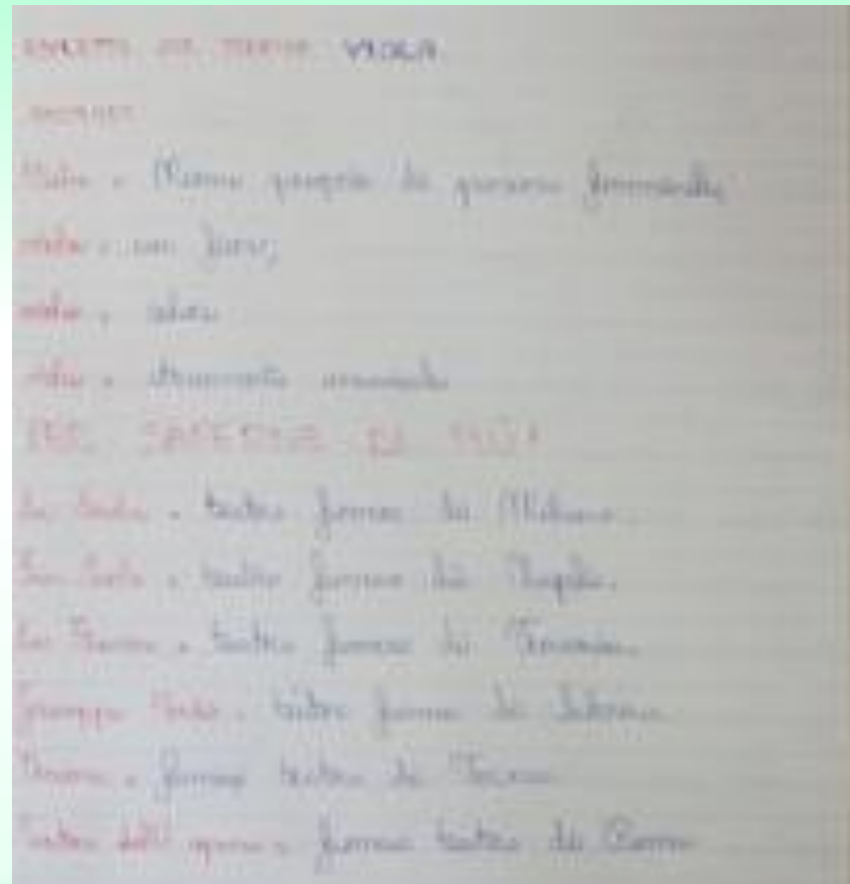 VIOLA
Nome proprio di persona femminile
viola = un fiore;
viola = colore
viola = strumento musicale
PER SAPERNE DI PIÙ
La Scala = teatro famoso di Milano.
San Carlo = teatro famoso di Napoli.
La Fenice = teatro famoso di Venezia.
Giuseppe Verdi = teatro famoso di Salerno.
famoso teatro di
Teatro dell'opera = famoso teatro di Roma